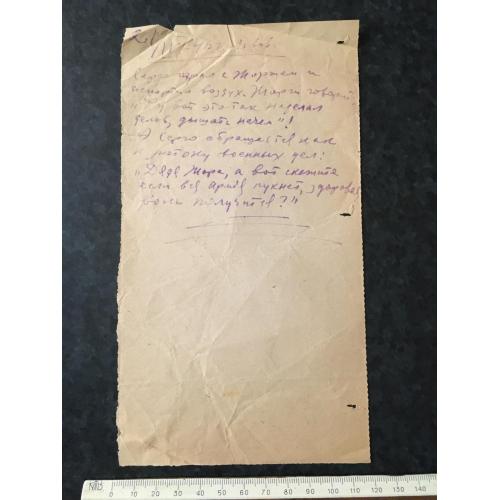 2.
Серго играл с Жоржем и
испортил воздух. Жорж говорит
"Ну вот это так наделал
делов, дышать нечем"!
А Серго обращается как
к знатоку военных дел:
"Дядя Жора, а вот скажите
если вся армия пукнет, здорово
получится?"
0 10 20 30 40 50 60 70 80 90 100 110 120 130 140